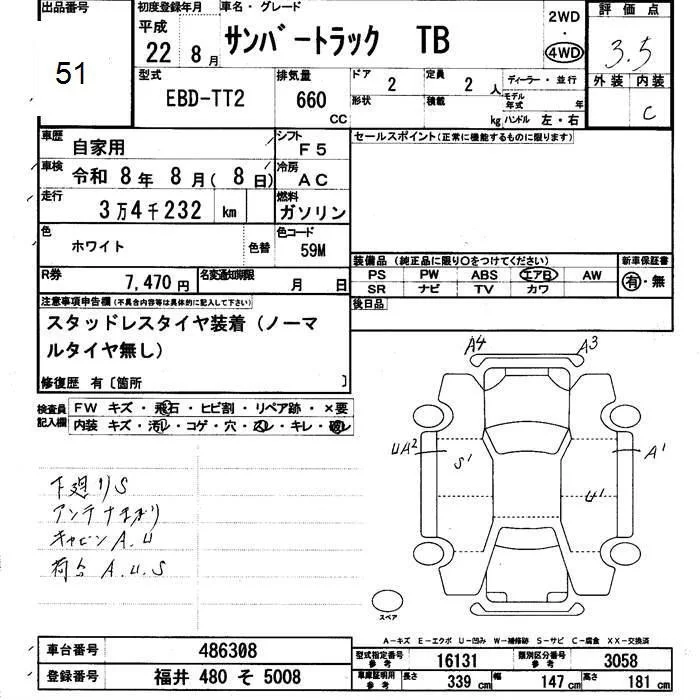 出品番号
51
初度登録年月
平成
22年 8月
車名・グレード
サンバートラック TB
2WD
・
4WD
評価点
3.5
外装 内装
C
型式
EBD-TT2
排気量
660
CC
ドア
2
定員
2 人
ディーラー・並行
形状
積載
kg
モデル年式 年
ハンドル 左・右
車歴
自家用
シフト
F5
車検
令和 8年 8月( 8日)
冷房
AC
走行
3万4千232 km
燃料
ガソリン
色
ホワイト
色替
色コード
59M
R券
7,470円
名変通知期限
月 日
セールスポイント(正常に機能するものに限ります)
装備品 (純正品に限り○をつけてください)
新車保証書
PS PW ABS エアB AW
SR ナビ TV カワ
有・無
後日品
注意事項申告欄(不具合内容等は具体的に記入して下さい)
スタッドレスタイヤ装着(ノーマ
ルタイヤ無し)
修復歴 有〔箇所 〕
検査員
記入欄
FW キズ・飛石・ヒビ割・リペア跡・×要
内装 キズ・汚レ・コゲ・穴・スレ・キレ・破レ
下廻りS
アンテナまがり
キャビンA.U
荷台 A.U.S
A4
A3
UA2
S1
A1
U1
スペア
A-キズ E-エクボ U-凹み W-補修跡 S-サビ C-腐食 XX-交換済
車台番号
486308
登録番号
福井 480 そ 5008
型式指定番号
参考
16131
類別区分番号
参考
3058
車庫証明用
参考
長さ
339 cm
幅
147 cm
高さ
181 cm